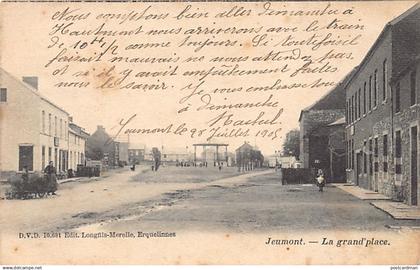 Nous comptons bien aller dimanche à
Hautmont nous arriverons avec le train
de 10 h 1/2 comme toujours. Si toutefois il
faisait mauvais ne nous attendez pas
et si il y avait empêchement faites
nous le savoir. Mille en vous embrassant
à dimanche
Rachel
Jeumont le 28 Juillet 1905
D.V.D. 10.691 Edit. Longfils-Merelle, Erquelinnes
Jeumont. — La grand'place.
postcardman